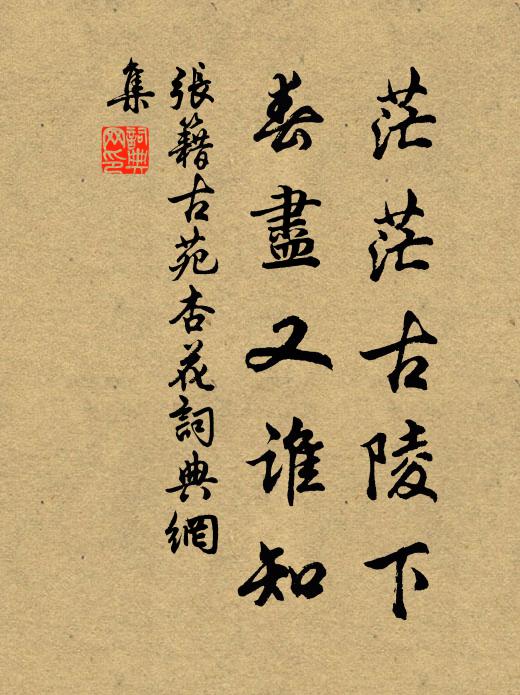 茫茫古陵下
春盡又誰知
張籍古苑杏花詞典網
集
詞典網印